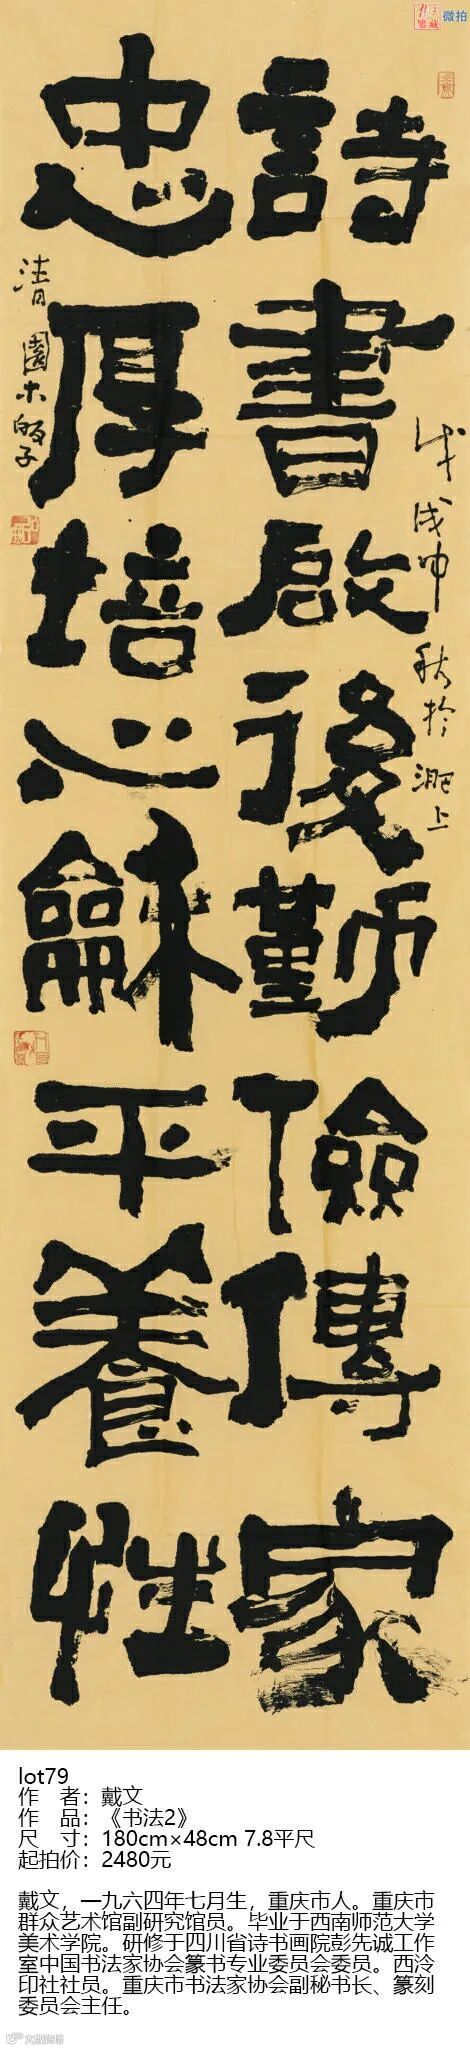 微拍
詩書啟後勤儉傳家
忠厚培心龢平養性
戊戌中秋於淝上
清園木皈子
lot79
作 者：戴文
作 品：《书法2》
尺 寸：180cm×48cm 7.8平尺
起拍价：2480元
戴文，一九六四年七月生，重庆市人。重庆市
群众艺术馆副研究馆员。毕业于西南师范大学
美术学院。研修于四川省诗书画院彭先诚工作
室中国书法家协会篆书专业委员会委员。西泠
印社社员。重庆市书法家协会副秘书长、篆刻
委员会主任。